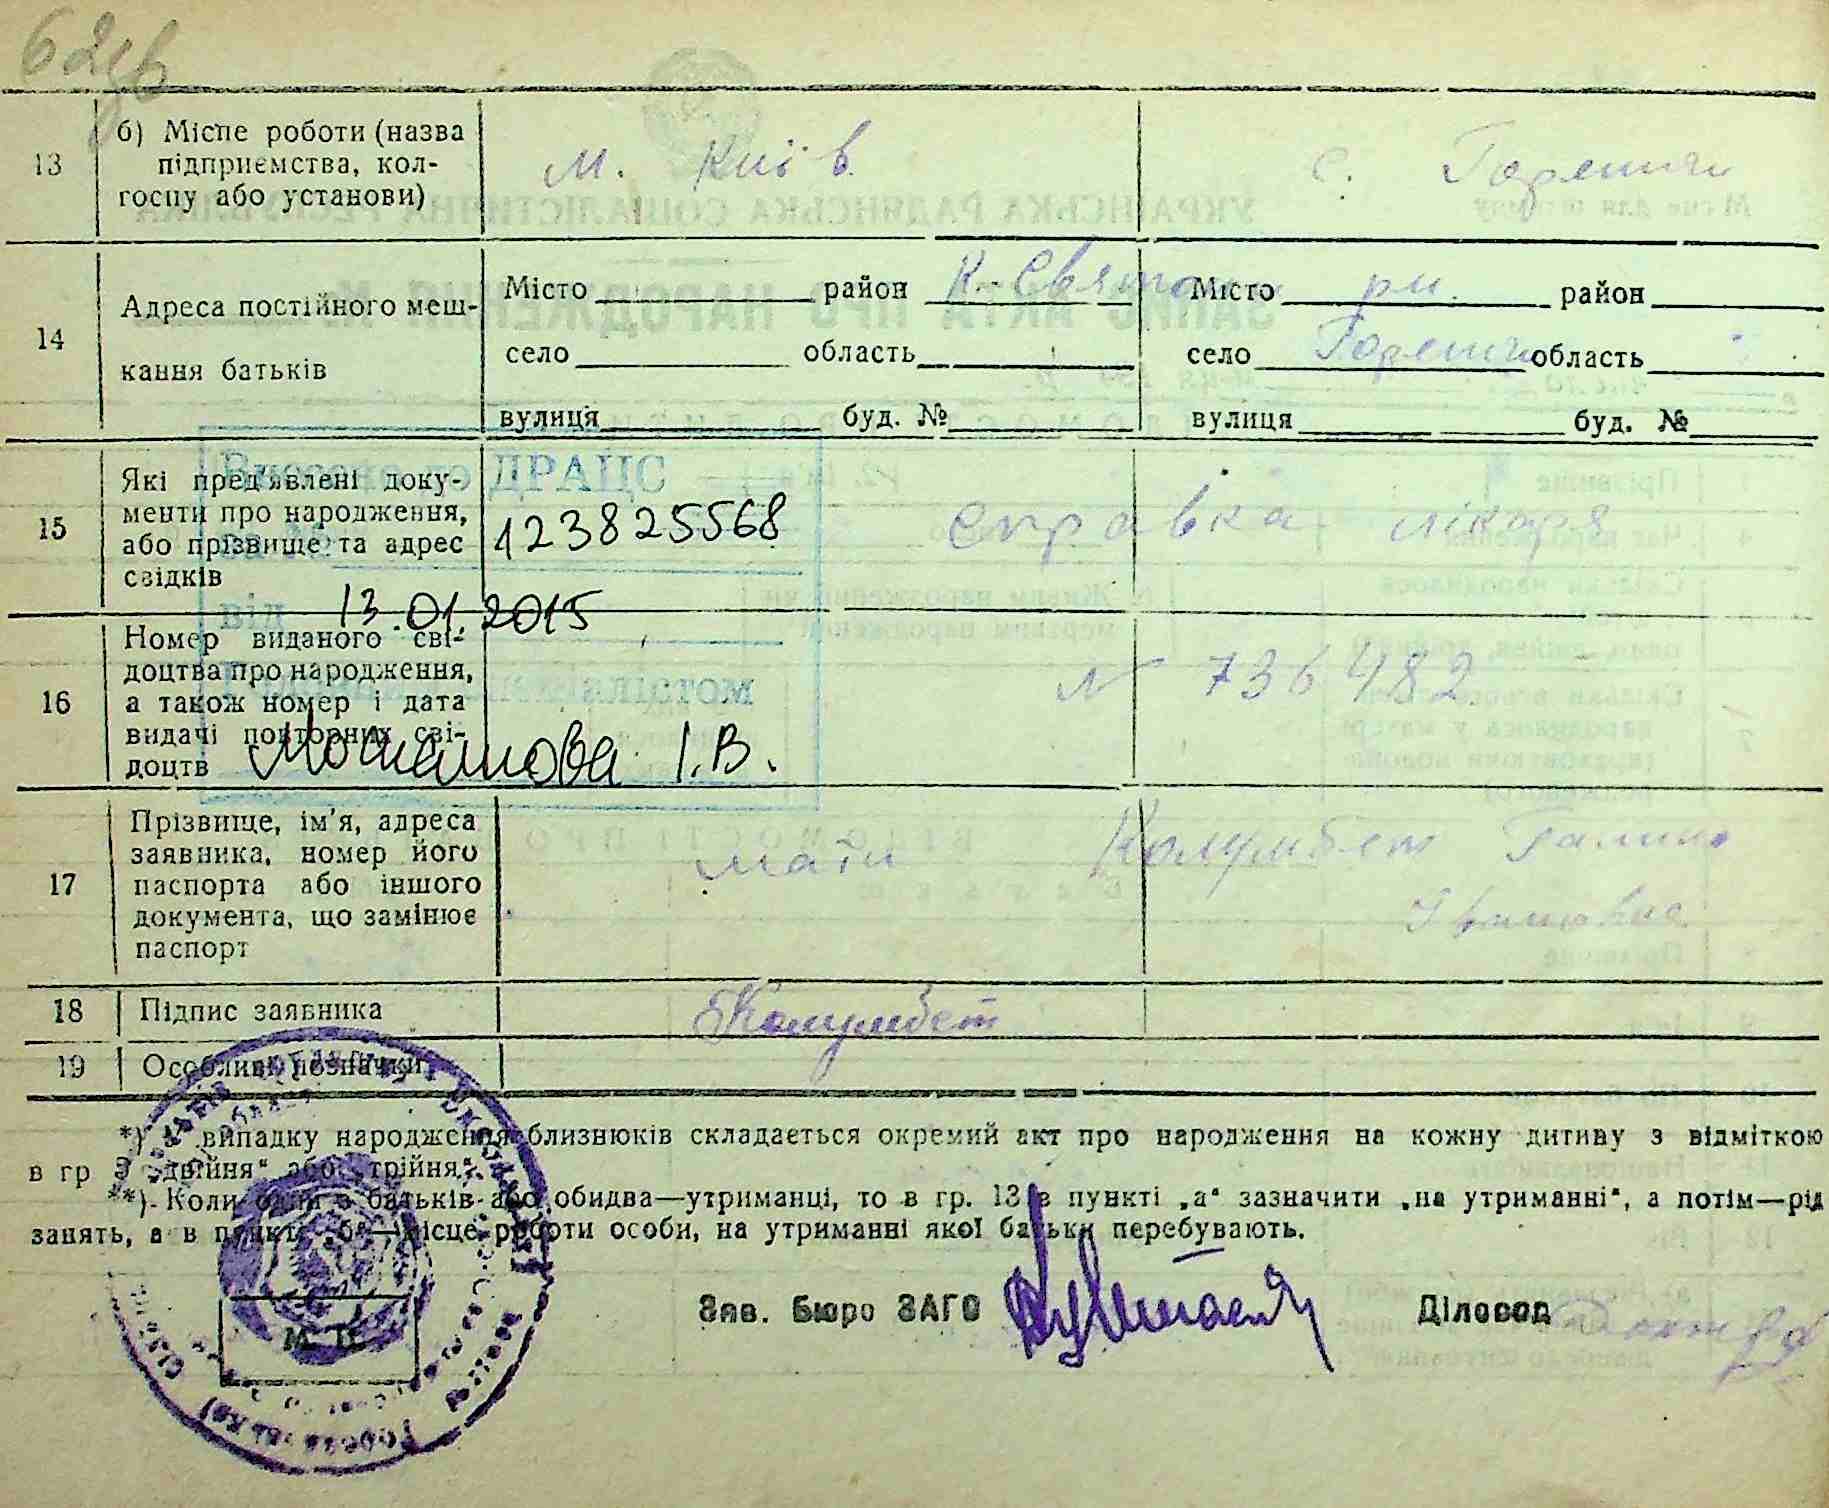 62зв
13 б) Місце роботи (назва підприємства, колгоспу або установи) м. Київ с. Гореничи
14 Адреса постійного мешкання батьків
Місто район К-Свято Місто рн. район
село область село Гореничи область
вулиця буд. № вулиця буд. №
15 Які пред'явлені документи про народження, або прізвище та адрес свідків справка лікаря
ДРАЦС
123825568
від 13.01.2015
16 Номер виданого свідоцтва про народження, а також номер і дата видачі повторних свідоцтв N 736482
І.В.
17 Прізвище, ім'я, адреса заявника, номер його паспорта або іншого документа, що замінює паспорт мати Колумбет Галина
Івановна
18 Підпис заявника Колумбет
19 Особливі позначки
*) У випадку народження близнюків складається окремий акт про народження на кожну дитину з відміткою
в гр 3 „двійня“ або „трійня“.
**). Коли один з батьків або обидва—утриманці, то в гр. 13 в пункті „а“ зазначити „на утриманні“, а потім—рід
занять, а в пункті „б“—місце роботи особи, на утриманні якої батьки перебувають.
Зав. Бюро ЗАГС Діловод
М. П.